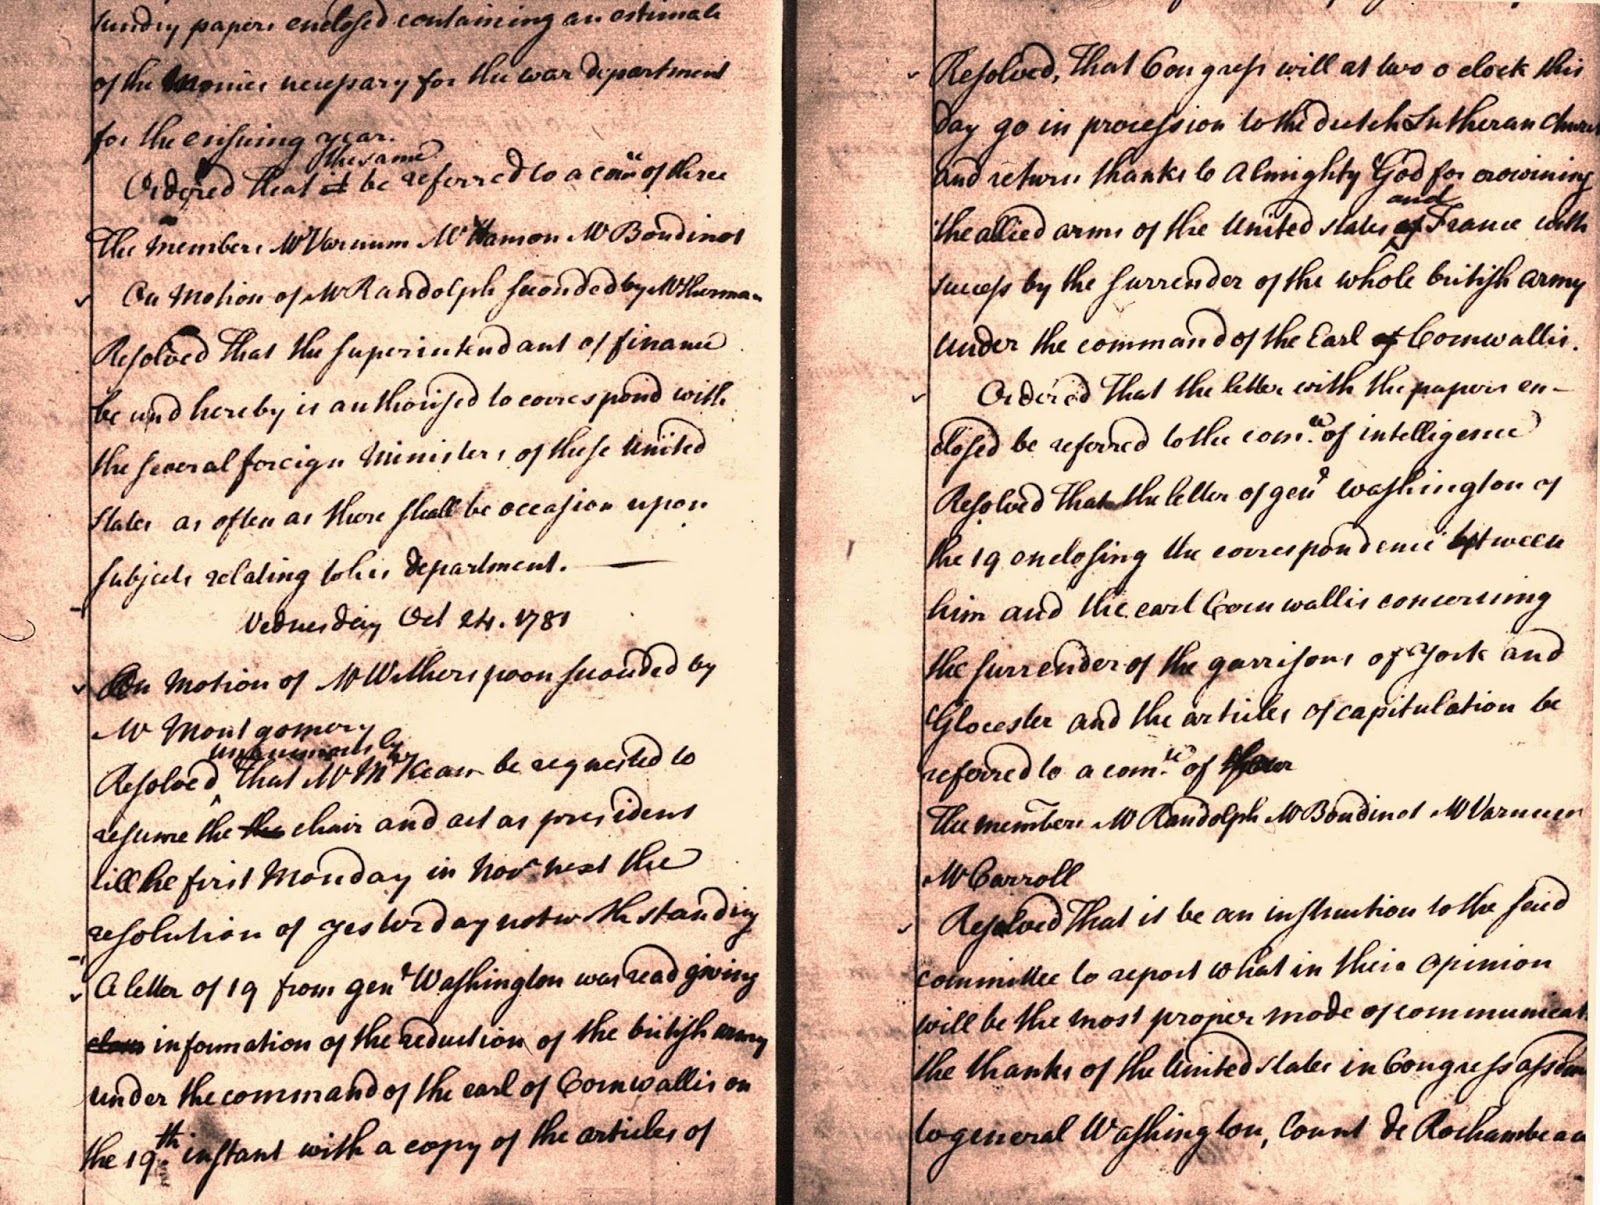 sundry papers enclosed containing an estimate
of the monies necessary for the war department
for the ensuing year.
the same
Ordered That it be referred to a comee of three
The members Mr Varnum Mr Hanson Mr Boudinot
On motion of Mr Randolph seconded by Mr Sherman
Resolved That the superintendant of finance
be and hereby is authorised to correspond with
the several foreign Ministers of these United
States as often as there shall be occasion upon
subjects relating to his department.
Wednesday Oct 24. 1781
On motion of Mr Witherspoon seconded by
Mr Montgomery
unanimously
Resolved That Mr McKean be requested to
resume the the chair and act as president
till the first Monday in Novr next the
resolution of yesterday notwithstanding
A letter of 19 from genl Washington was read giving
information of the reduction of the british army
under the command of the earl of Cornwallis on
the 19th instant with a copy of the articles of
Resolved, That Congress will at two o clock this
day go in procession to the dutch Lutheran church
and return thanks to Almighty God for crowning
and
the allied arms of the United states of France with
success by the surrender of the whole british army
under the command of the Earl of Cornwallis.
Ordered That the letter with the papers en-
closed be referred to the comee of intelligence
Resolved That the letter of genl Washington of
the 19 enclosing the correspondence between
him and the earl Cornwallis concerning
the surrender of the garrisons of York and
Glocester and the articles of capitulation be
referred to a comee of four
The members Mr Randolph Mr Boudinot Mr Varnum
Mr Carroll
Resolved That it be an instruction to the said
committee to report what in their opinion
will be the most proper mode of communicat
the thanks of the United States in Congress assem
to general Washington, Count de Rochambeau